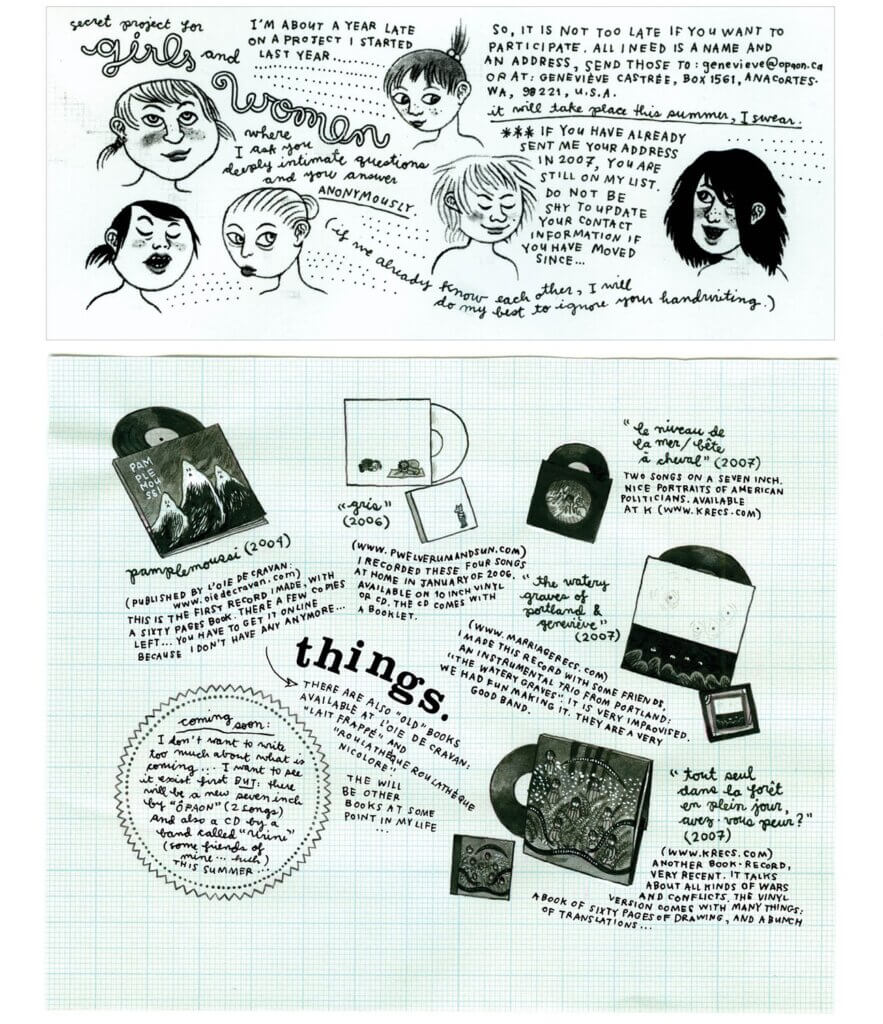 secret project for
girls and
women
where
I ask you
deeply intimate questions
and you answer
ANONYMOUSLY
(if we already know each other, I will
do my best to ignore your handwriting.)
I'M ABOUT A YEAR LATE
ON A PROJECT I STARTED
LAST YEAR......
SO, IT IS NOT TOO LATE IF YOU WANT TO
PARTICIPATE. ALL I NEED IS A NAME AND
AN ADDRESS, SEND THOSE TO: genevieve@opaon.ca
OR AT: GENEVIÈVE CASTRÉE, BOX 1561, ANACORTES.
WA, 98221, U.S.A.
it will take place this summer, I swear.
*** IF YOU HAVE ALREADY
SENT ME YOUR ADDRESS
IN 2007, YOU ARE
STILL ON MY LIST.
DO NOT BE
SHY TO UPDATE
YOUR CONTACT
INFORMATION IF
YOU HAVE MOVED
SINCE...
PAM
PLE
MOUS
SI
pamplemoussi (2004)
(PUBLISHED BY L'OIE DE CRAVAN:
www.oiedecravan.com)
THIS IS THE FIRST RECORD I MADE, WITH
A SIXTY PAGES BOOK. THERE A FEW COPIES
LEFT... YOU HAVE TO GET IT ONLINE
BECAUSE I DON'T HAVE ANY ANYMORE...
"gris"
(2006)
(WWW.PWELVERUMANDSUN.COM)
I RECORDED THESE FOUR SONGS
AT HOME IN JANUARY OF 2006.
AVAILABLE ON 10 INCH VINYL
OR CD. THE CD COMES WITH
A BOOKLET.
"le niveau de
la mer/bête
à cheval" (2007)
TWO SONGS ON A SEVEN INCH.
NICE PORTRAITS OF AMERICAN
POLITICIANS. AVAILABLE
AT K (WWW.KRECS.COM)
"the watery
graves of
portland &
geneviève"
(2007)
(WWW.MARRIAGERECS.COM)
I MADE THIS RECORD WITH SOME FRIENDS,
AN INSTRUMENTAL TRIO FROM PORTLAND:
"THE WATERY GRAVES". IT IS VERY IMPROVISED.
WE HAD FUN MAKING IT. THEY ARE A VERY
GOOD BAND.
things.
THERE ARE ALSO "OLD" BOOKS
AVAILABLE AT L'OIE DE CRAVAN:
"LAIT FRAPPÉ" AND
"ROULATHÈQUE ROULATHÈQUE
NICOLORE".
THE WILL
BE OTHER
BOOKS AT SOME
POINT IN MY LIFE
...
coming
soon:
I don't want to write
too much about what is
coming... I want to see
it exist first BUT: there
will be a new seven inch
by "ÔPAON" (2 songs)
and also a CD by a
band called "Urine"
(some friends of
mine...
THIS SUMMER.
"tout seul
dans la forêt
en plein jour,
avez-vous peur?"
(2007)
(WWW.KRECS.COM)
ANOTHER BOOK-RECORD,
VERY RECENT. IT TALKS
ABOUT ALL KINDS OF WARS
AND CONFLICTS. THE VINYL
VERSION COMES WITH MANY THINGS:
A BOOK OF SIXTY PAGES OF DRAWING, AND A BUNCH
OF TRANSLATIONS...